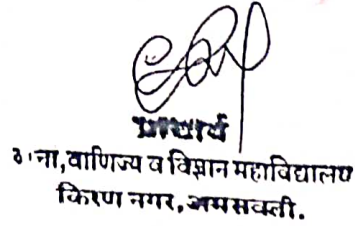 प्राचार्य
ना, वाणिज्य व विज्ञान महाविद्यालय
किरण नगर, अमरावती.